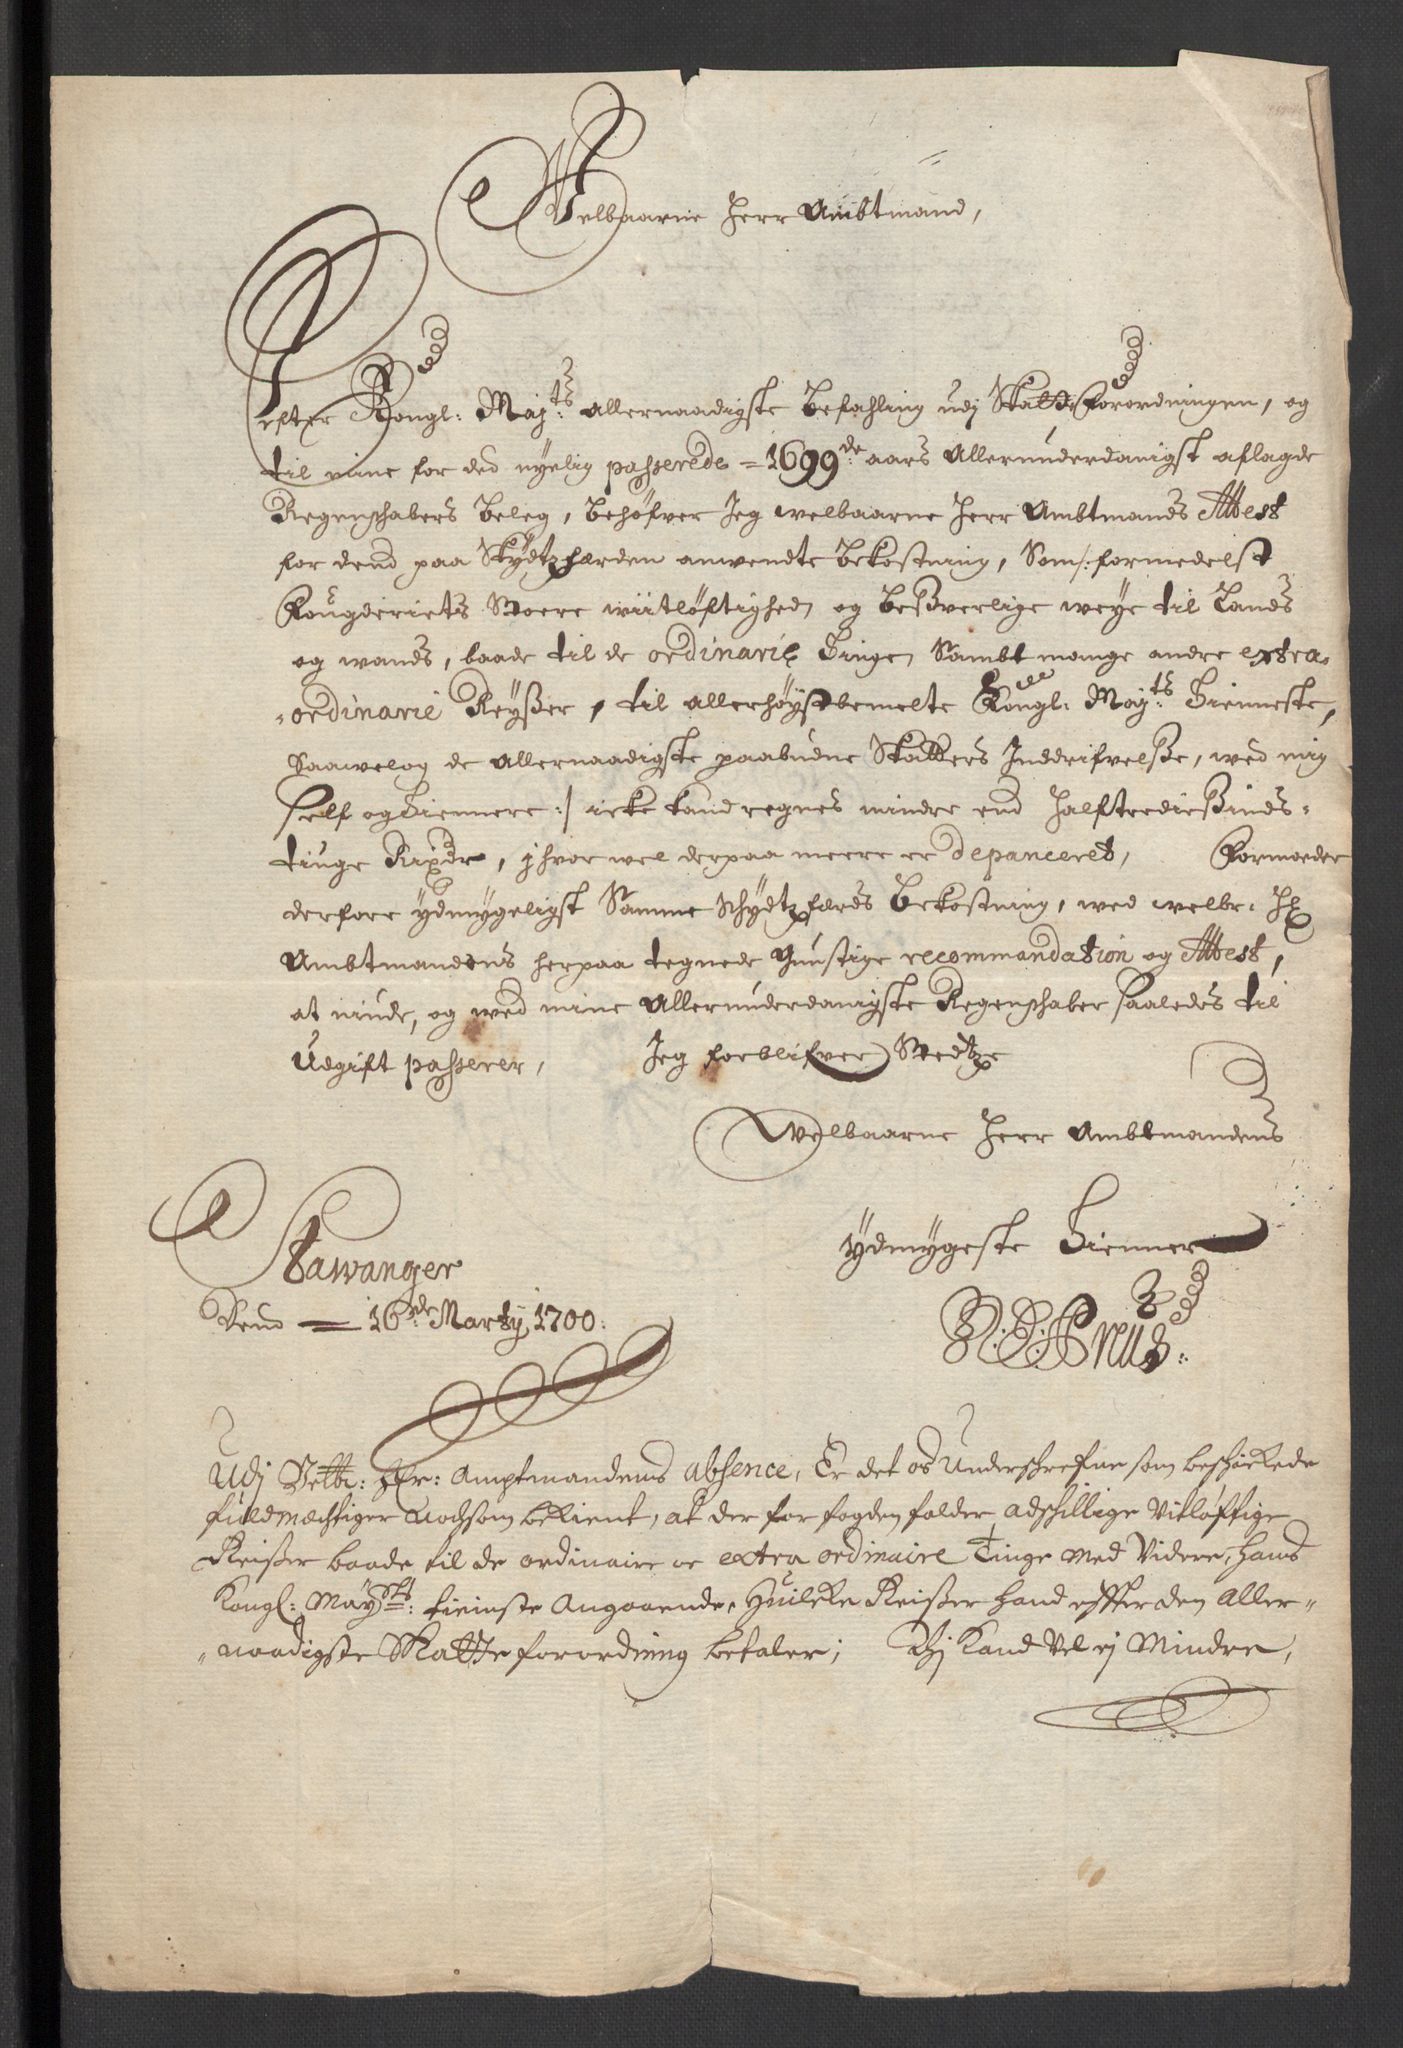 Welbaarne Herr Ambtmand,
Efter Kongl: Maj:ts allernaadigste befahling udj Skatt forordningen, og
til mine for ded nyelig passerede = 1699de aars allerunderdanigst aflagde
Regenschabers beleg, behøfver Jeg welbaarne Herr Ambtmands Attest
for dend paa Skydtzferden anwendte bekostning, Som /: formedelst
Fougderiets Stoere wiitløftighed og beswerlige weye til Lands
og wands, baade til de ordinarie Tinge, Sambt mange andre extra-
-ordinarie Reyßer, til allerhøystbemelte Kongl: Maj:ts Tienneste,
Saawelog de allernaadigste paabudne Skatters Inddrifvelße, wed mig
self og Tiennere :/ icke kand regnes mindre end halftrediesinds-
tiuge Rixdr, jhvor wel derpaa meere er depenceret, Formoder
derfore ydmygeligst Samme Schydtzferds bekostning, wed welbr: Hr
Ambtmandens herpaa tegnede Gunstige recommendation og Attest,
at niude, og wed mine Allerunderdanigste Regenschaber saaledes til
Udgift passerer, Jeg forblifver Stedtze
Welbaarne Herr Ambtmandens
ydmygeste Tienner
Stawanger
Dend = 16de Martij 1700:
Udj Velb: Hr: Amptmandens absence, Er det os Underschrefne som beschickede
fuldmechtiger nochsom bekient, at der for fogden falder adschillige Vitløftige
Reißer baade til de ordinaire oc extra ordinaire Tinge med Videre, hans
Kongl: Mayts: tieniste Angaaende, Huilcke Reißer hand effter den Aller-
-naadigste Skatte forordning betaler; Thj Kand Vel ej Mindre,